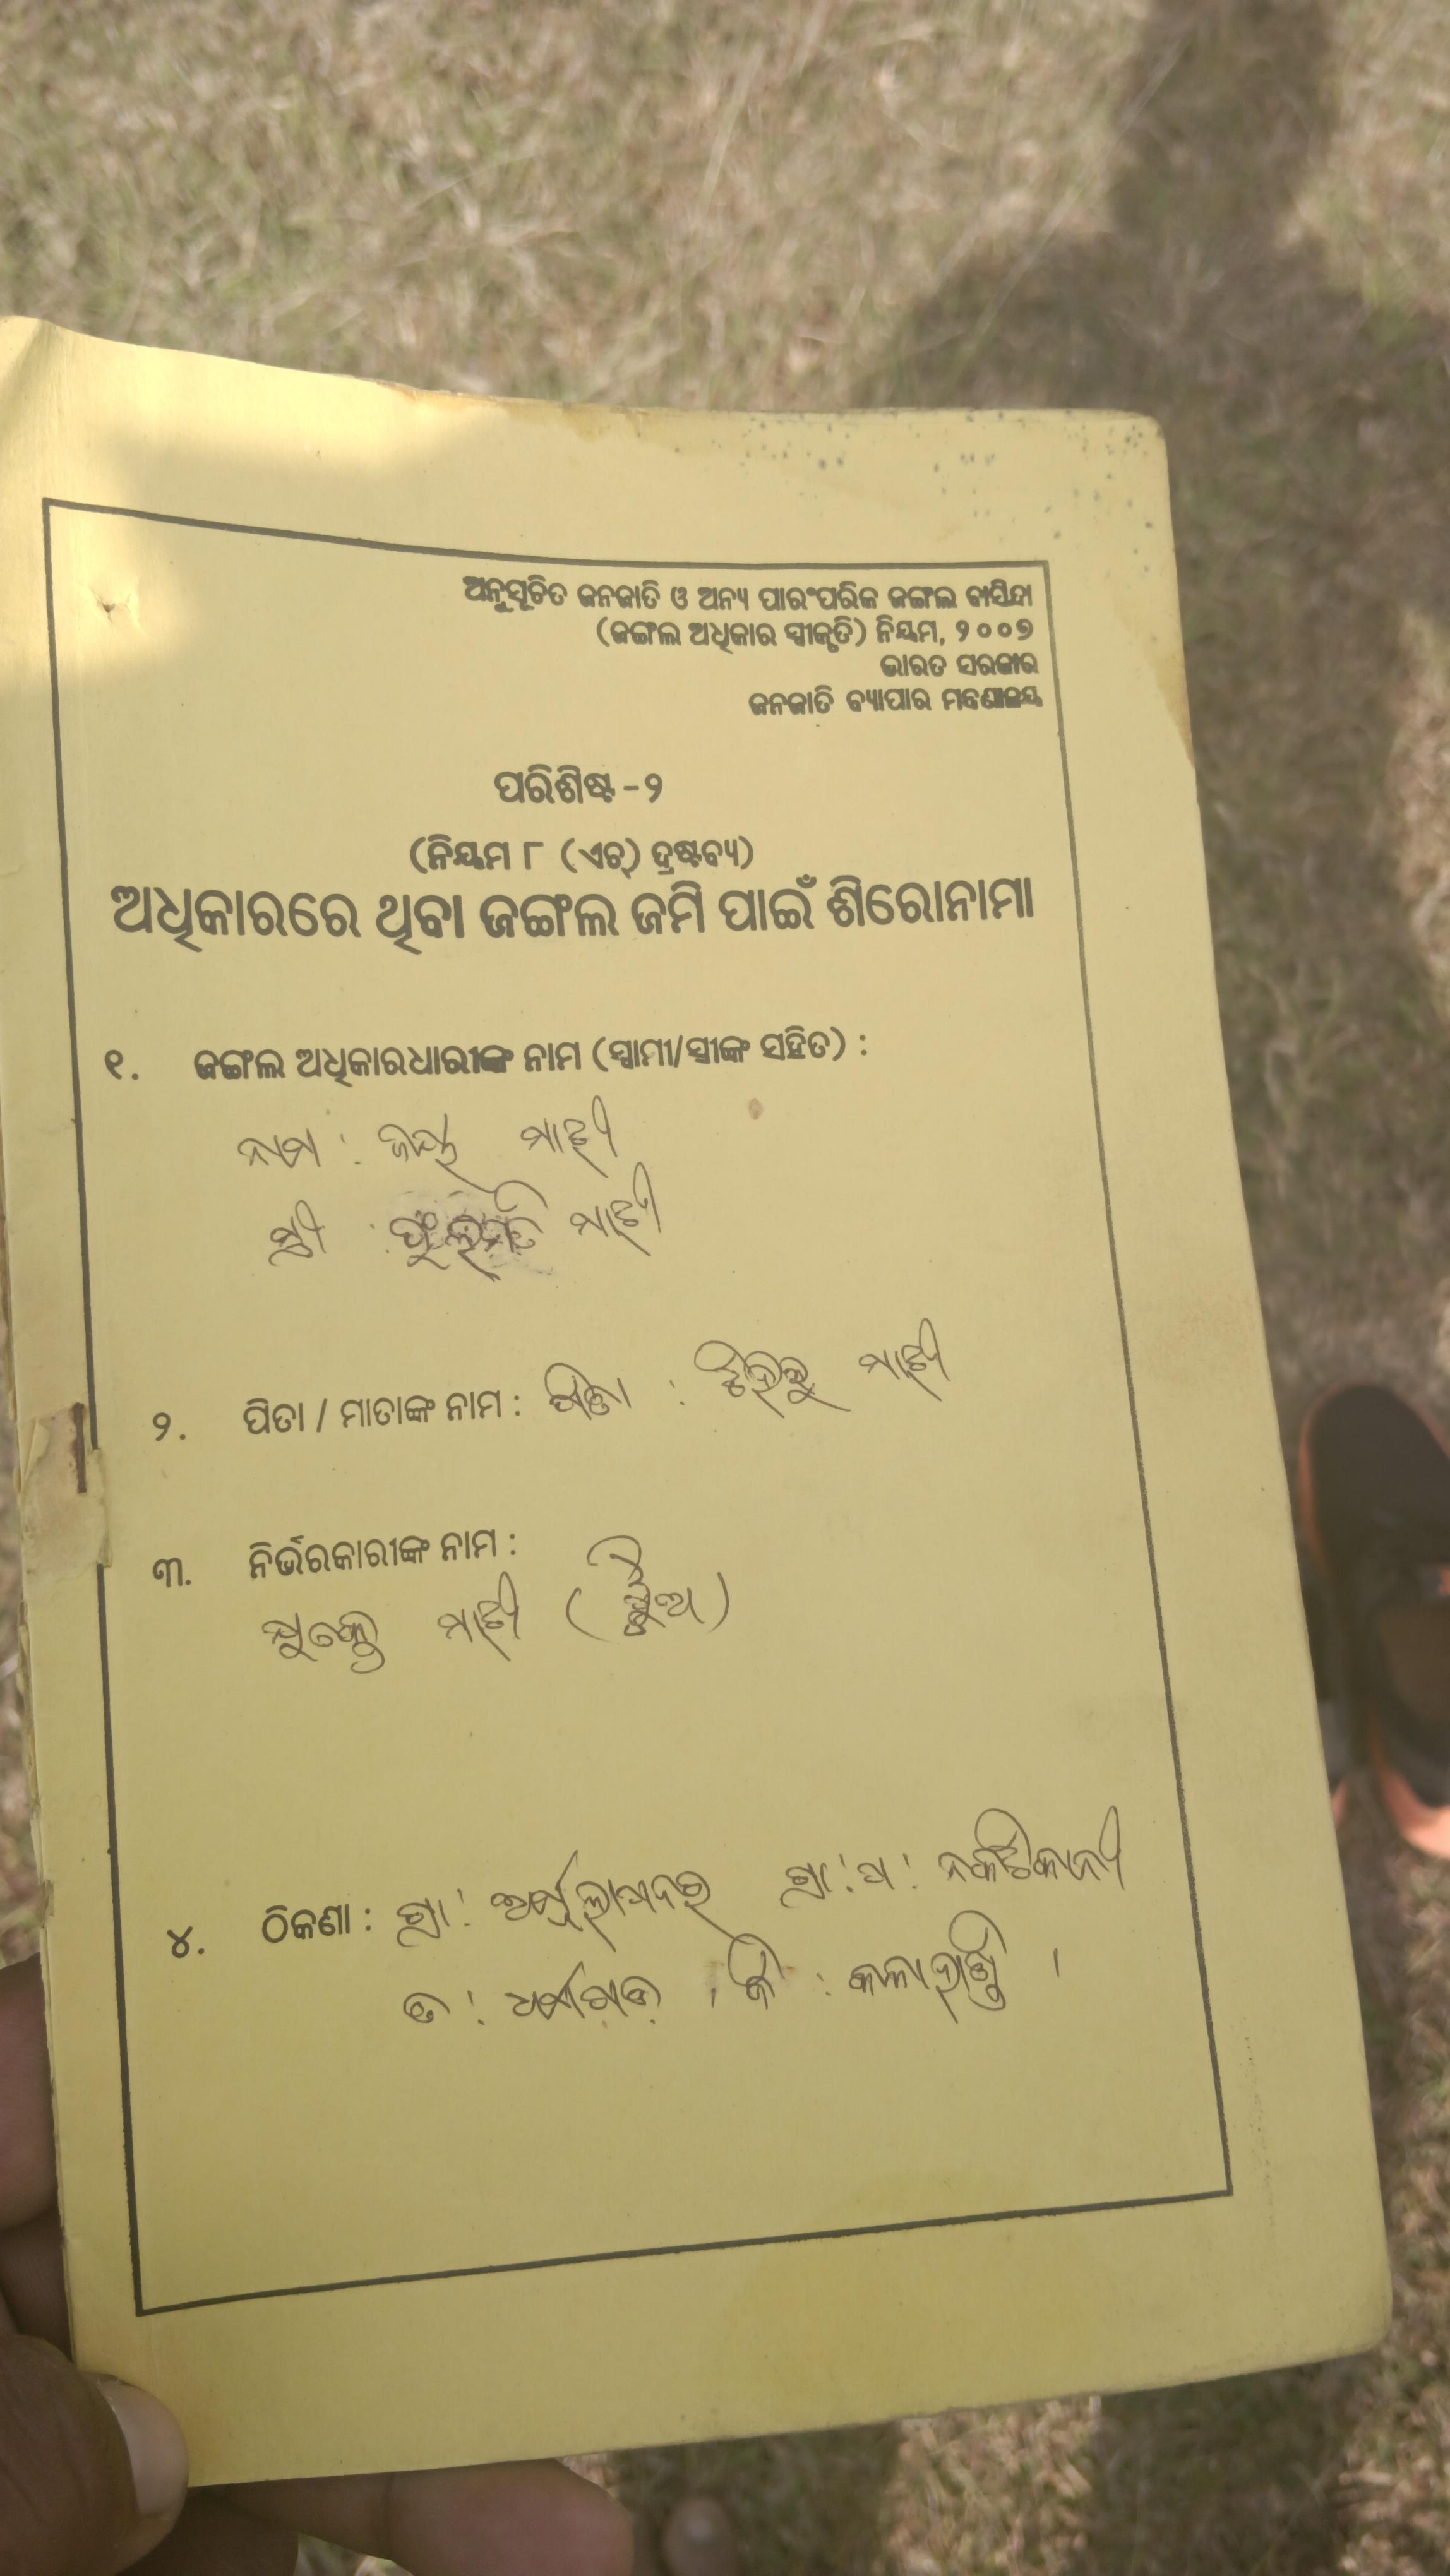 ଅନୁସୂଚିତ ଜନଜାତି ଓ ଅନ୍ୟ ପାରଂପରିକ ଜଙ୍ଗଲ ବାସିନ୍ଦା
(ଜଙ୍ଗଲ ଅଧିକାର ସ୍ୱୀକୃତି) ନିୟମ, ୨୦୦୭
ଭାରତ ସରକାର
ଜନଜାତି ବ୍ୟାପାର ମନ୍ତ୍ରଣାଳୟ
ପରିଶିଷ୍ଟ - ୨
(ନିୟମ ୮ (ଏଚ୍) ଦ୍ରଷ୍ଟବ୍ୟ)
ଅଧିକାରରେ ଥିବା ଜଙ୍ଗଲ ଜମି ପାଇଁ ଶିରୋନାମା
୧. ଜଙ୍ଗଲ ଅଧିକାରଧାରୀଙ୍କ ନାମ (ସ୍ୱାମୀ/ସ୍ତ୍ରୀଙ୍କ ସହିତ) :
ନାମ : ମାଝୀ
ସ୍ତ୍ରୀ : ମାଝୀ
୨. ପିତା / ମାତାଙ୍କ ନାମ : ପିତା : ମାଝୀ
୩. ନିର୍ଭରକାରୀଙ୍କ ନାମ :
ମାଝୀ (ଝିଅ)
୪. ଠିକଣା : ଗ୍ରା : ଗ୍ରା : ପ : ନକଟିକାନୀ
ତ : ଧର୍ମଗଡ , ଜି : କଳାହାଣ୍ଡି ।